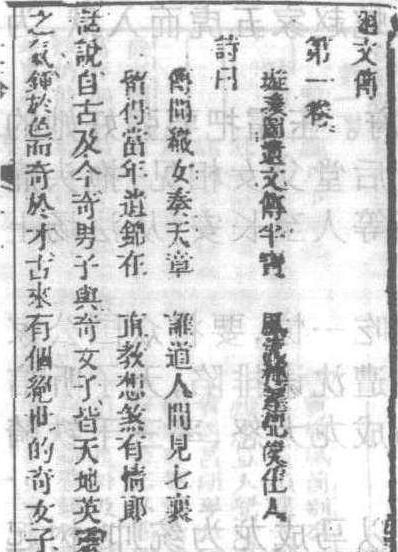 迴文傳
第一卷
遊漢園遺文傳半寶 風流
詩曰
傳聞織女奏天章 誰道人間見七襄
留得當年遺錦在 直教想煞有情郎
話說自古及今奇男子與奇女子皆天地英靈
之氣鍾於色而奇於才古來有個絕世的奇女子